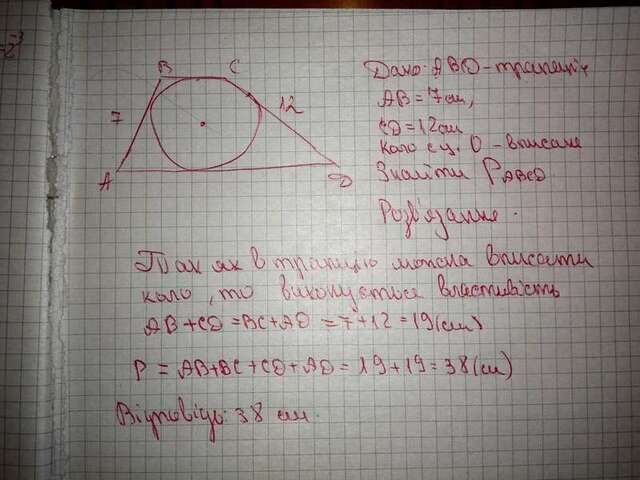 Дано: ABCD - трапеція
AB = 7 см,
CD = 12 см
коло з ц. O - вписане
Знайти P ABCD
Розв'язання.
B
C
7
12
A
D
Так як в трапецію можна вписати
коло, то виконується властивість
AB + CD = BC + AD = 7 + 12 = 19 (см)
P = AB + BC + CD + AD = 19 + 19 = 38 (см)
Відповідь: 38 см.